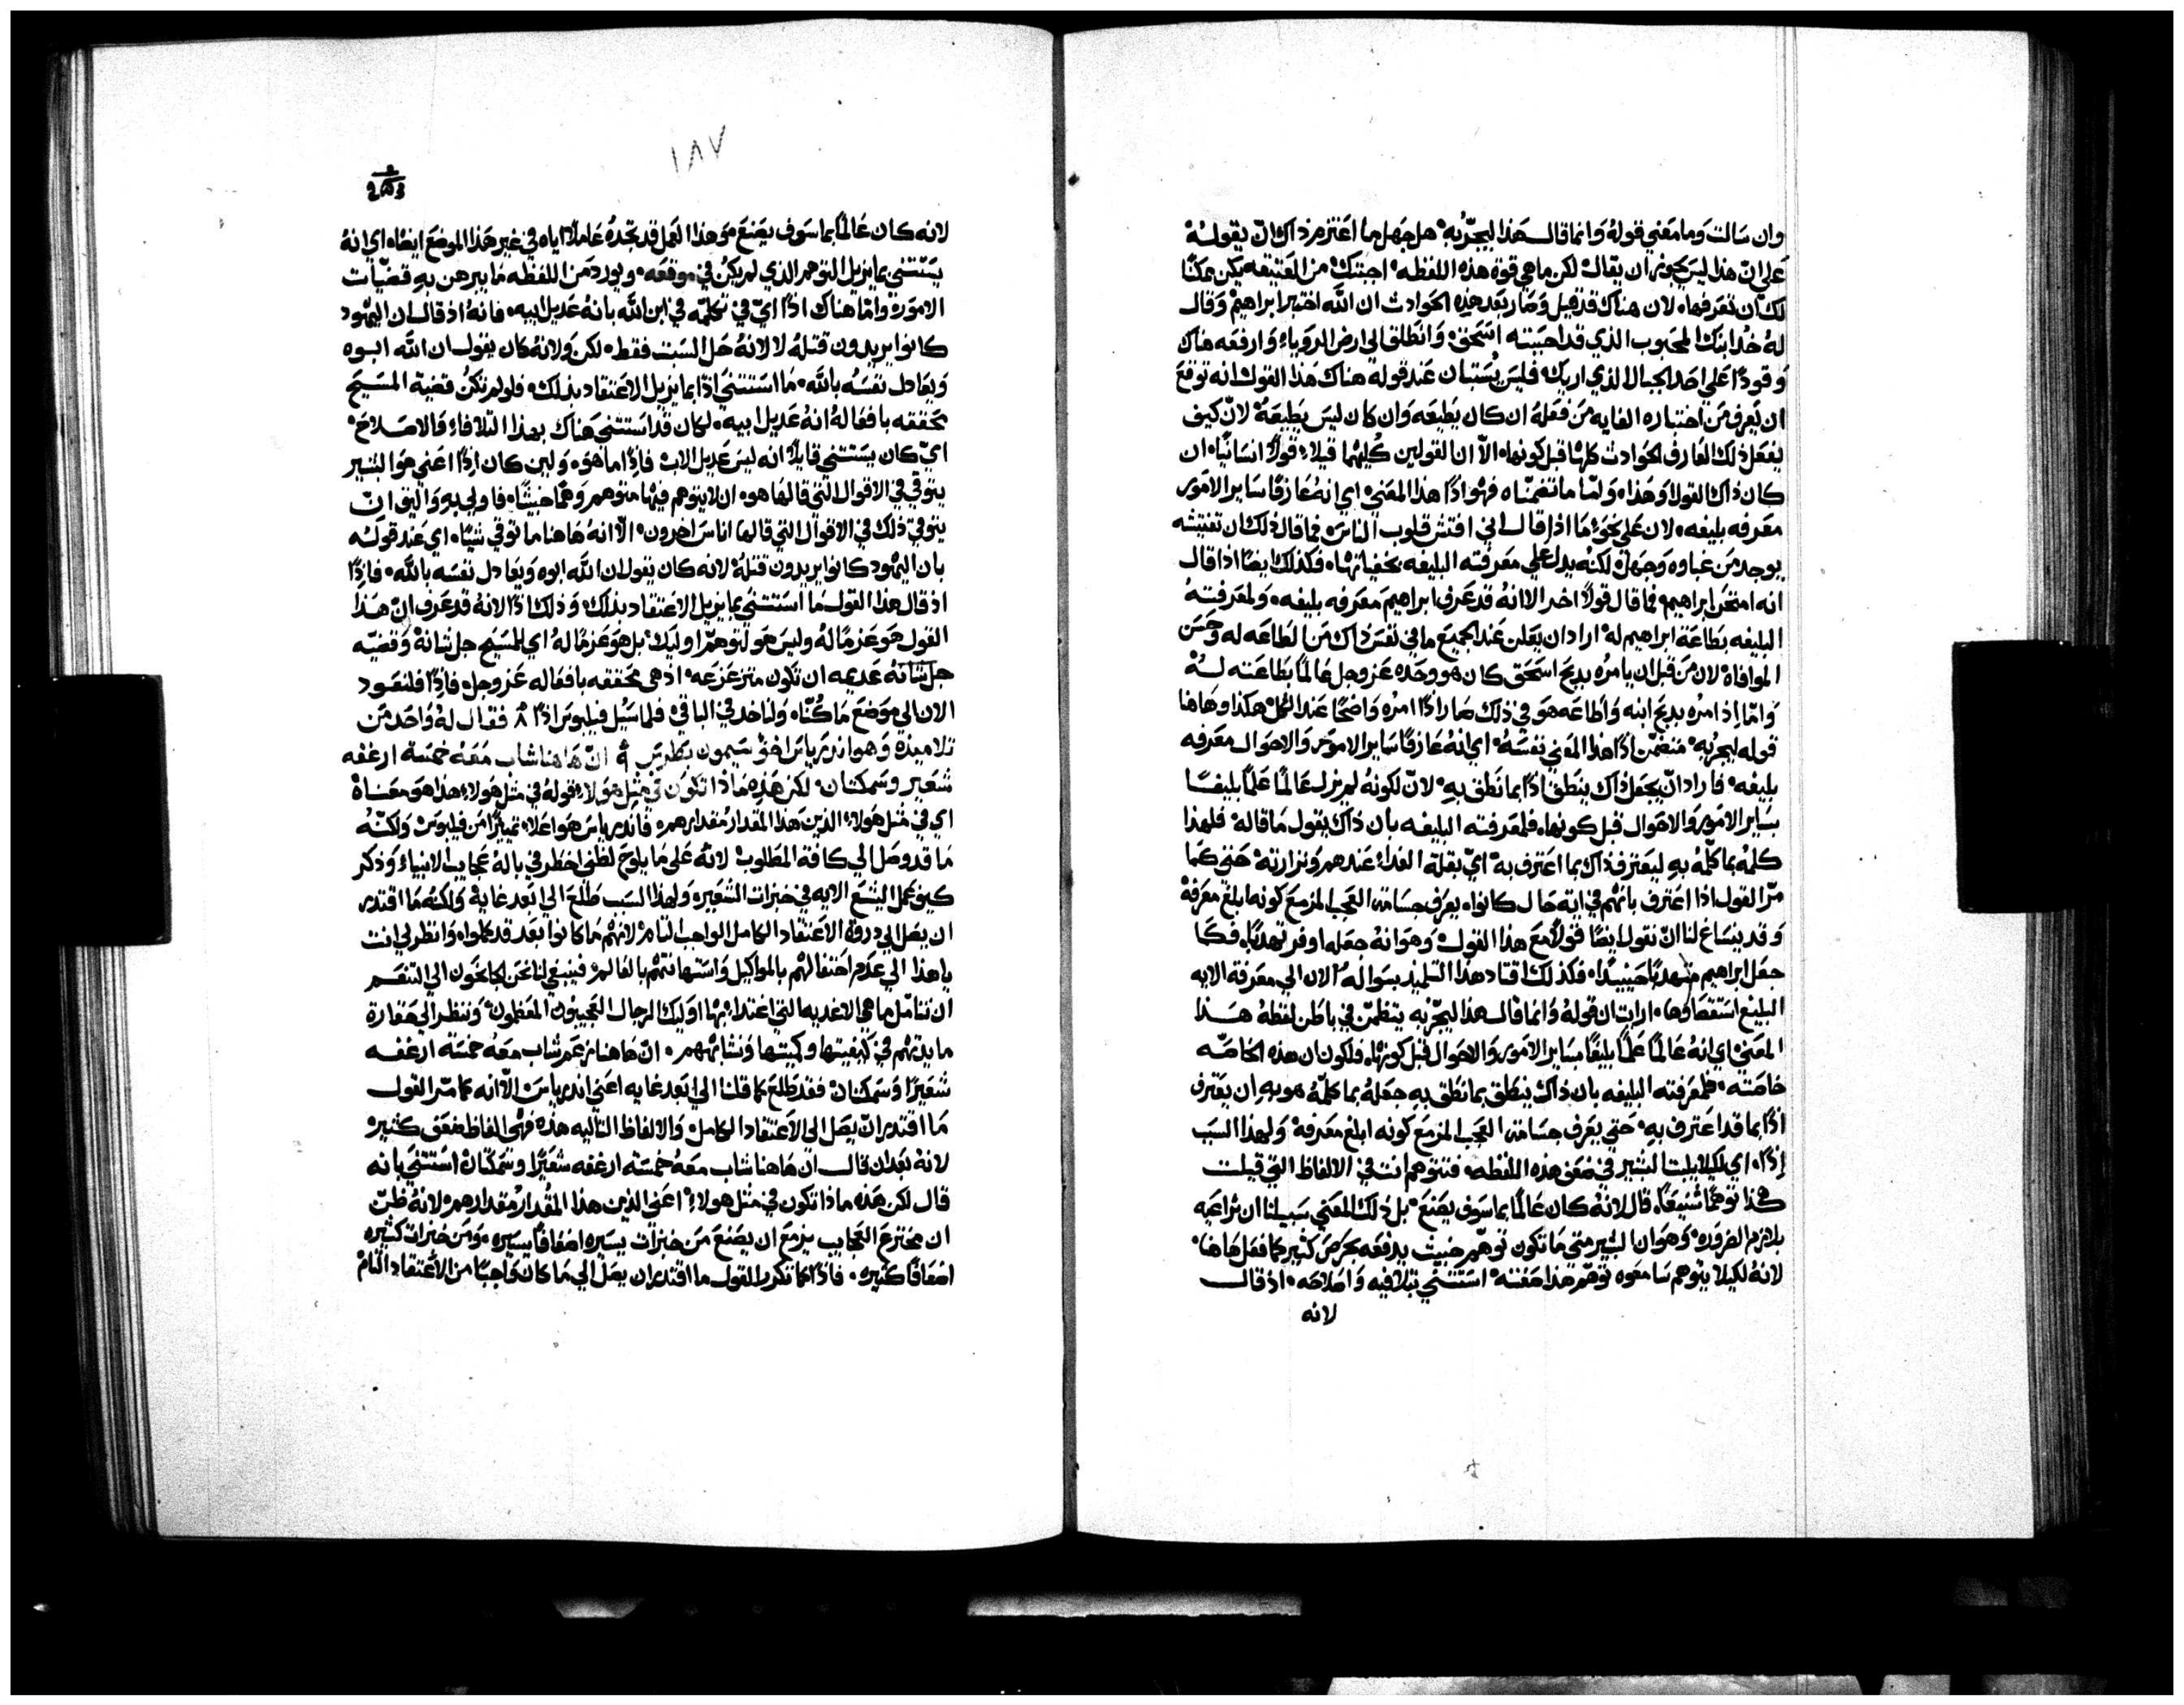 وان سالت وما معني قوله وانما قال هذا ليجربه هل جهل ما اعتزم ذاك ان يقوله
علي ان هذا ليس يجوز ان يقال لكن ما هي قوة هذه اللفظه اجبتك من العتيقه يكن ممكنًا
لك ان تعرفها لان هناك قد قيل وصار بعد هذه الحوادث ان الله اختبر ابراهيم وقال
له خذ ابنك المحبوب الذي قد احببته اسحق وانطلق الي ارض الروياء وارفعه هناك
وقودًا علي احد الجبال الذي اريك فليس يستبان عند قوله هناك هذا القول انه توقع
ان يعرف من اختباره الغايه من فعله ان كان يطيعه وان كان ليس يطيعه لان كيف
يفعل ذلك العارف الحوادث كلها قبل كونها الا ان القولين كليهما قيلا قولًا انسانيًا ان
كان ذاك القول او هذا ولما ما تضمناه فهو اذًا هذا المعني اي انه عارفًا ساير الامور
معرفه بليغه لان علي نحو ما اذا قال اني افتش قلوب الناس فما قال ذلك ان تفتيشه
يوجد من غباوه وجهل لكنه يدل علي معرفته البليغه بخفياتها فكذلك ايضًا اذا قال
انه امتحن ابراهيم فما قال قولًا اخر الا انه قد عرف ابراهيم معرفه بليغه ولمعرفته
البليغه بطاعة ابراهيم له اراد ان يعلن عند الجميع ما في نفس ذاك من الطاعه له وحسن
الموافاه لان من قبل ان يامره بذبح اسحق كان هو وحده عز وجل عالمًا بطاعته له
واما اذ امره بذبح ابنه واطاعه هو في ذلك صار اذًا امره واضحًا عند الكل هكذا وهاهنا
قوله ليجربه متضمن اذًا هذا المعني نفسه اي انه عارفًا ساير الامور والاحوال معرفه
بليغه فاراد ان يجعل ذاك ينطق اذًا بما نطق به لان لكونه لم يزل عالمًا علمًا بليغًا
بساير الامور والاحوال قبل كونها فلمعرفته البليغه بان ذاك يقول ما قاله فلهذا
كلمه بما كلمه به ليعترف ذاك بما اعترف به اي بقلة الغداء عندهم ونزارته حتي كما
مر القول اذا اعترف بانهم في اية حال كانوا يعرف جسامة العجب المزمع كونه ابلغ معرفة
وقد ينساغ لنا ان نقول ايضًا قولًا مع هذا القول وهو انه جعله اوفر تهذبًا فكما
جعل ابراهيم متهذبًا حينيذًا فكذلك اقتاد هذا التلميذ بسواله الان الي معرفة الايه
البليغ استقصاوها ارايت ان قوله وانما قال هذا ليجربه يتظمن في باطن لفظه هذا
المعني اي انه عالمًا علمًا بليغًا بساير الامور والاحوال قبل كونها فلكون ان هذه الخاصه
خاصته فلمعرفته البليغه بان ذاك ينطق بما نطق به جعله بما كلمه هو به ان يعترف
اذًا بما قد اعترف به حتي يعرف جسامة العجب المزمع كونه ابلغ معرفة ولهذا السبب
اذًا اي لكيلا يلبث البشير في ضعف هذه اللفظه فتتوهم انت في الالفاظ التي قيلت
هكذا توهمًا شنيعًا قال لانه كان عالمًا بما سوف يصنع بل ذلك المعني سبيلنا ان نراعيه
بلازم الضروره وهو ان البشير متي ما تكون توهم خبيث يدفعه بحرص كثير كما فعل هاهنا
لانه لكيلا يتوهم سامعوه توهم هذا صفته استثني بتلافيه واصلاحه اذ قال
لانه
١٨٧
لانه كان عالمًا بما سوف يصنع وهذا العمل قد تجده عاملًا اياه في غير هذا الموضع ايضًا اي انه
يستثني بما يزيل التوهم الذي لم يكن في موقعه ويورد من اللفظه ما يبرهن به قضيات
الامور واما هناك اذًا اي في تكلمه في ابن الله بانه عديل ابيه فانه اذ قال ان اليهود
كانوا يريدون قتله لا لانه حل السبت فقط لكن ولانه كان يقول ان الله ابوه
ويعادل نفسه بالله ما استثني اذًا بما يزيل الاعتقاد بذلك فلو لم تكن قضية المسيح
تحققه بافعاله انه عديل ابيه لكان قد استثني هناك بهذا التلافاء والاصلاح
اي كان يستثني قايلًا انه ليس عديل الاب فاذًا ما هو ولين كان اذًا اعني هو البشير
يتوقي في الاقوال التي قالها هو ان لا يتوهم فيها متوهم وهمًا خبيثًا فاولي به واليق ان
يتوقي ذلك في الاقوال التي قالها اناس اخرون الا انه هاهنا ما توقي شيًا اي عند قوله
بان اليهود كانوا يريدون قتله لانه كان يقول ان الله ابوه ويعادل نفسه بالله فاذًا
اذ قال هذا القول ما استثني بما يزيل الاعتقاد بذلك وذلك اذًا لانه قد عرف ان هذا
القول هو عزمًا له وليس هو لتوهم اوليك بل هو عزمًا له اي للمسيح جل شانه وقضيه
جل شانه عديمه ان تكون متزعزعه اذ هي محققه بافعاله عز وجل فاذًا فلنعود
الان الي موضع ما كنا ولناخذ في الباقي فلما سيل فيلبوس اذًا ٨ فقال له واحد من
تلاميذه وهو اندرياس اخو سيمون بطرس ٩ ان هاهنا شاب معه خمسة ارغفه
شعير وسمكتان لكن هذه ماذا تكون في مثل هولاء قوله في مثل هولاء هذا هو معناه
اي في مثل هولاء الذين هذا المقدار مقدارهم فاندرياس هو اعلا تمييزًا من فيلبوس ولكنه
ما قد وصل الي كافة المطلوب لانه علي ما يلوح لظني اخطر في باله عجايب الانبياء وذكر
كيف عمل اليشع الايه في خبزات الشعير ولهذا السبب طلع الي ابعد غايه ولكنه ما اقتدر
ان يصل الي ذروة الاعتقاد الكامل الواجب التام لانهم ما كانوا بعد قد كملوا وانظر لي انت
ياهذا الي عدم احتفالهم بالمواكيل واستهانتهم بالعالم فينبغي لنا نحن الجانحون الي التنعم
ان نتامل ما هي الاغديه التي اغتداء بها اوليك الرجال العجيبون المعظمون وننظر الي حقارة
مايدتهم في كيفيتها وكميتها ونشابههم ان هاهنا زعم شاب معه خمسة ارغفه
شعيرًا وسمكتان فقد طلع كما قلنا الي ابعد غايه اعني اندرياس الا انه كما مر القول
ما اقتدر ان يصل الي الاعتقاد الكامل والالفاظ التاليه هذه فهي الفاظ ضعف كثيره
لانه بعد ان قال ان هاهنا شاب معه خمسة ارغفه شعيرًا وسمكتان استثني بانه
قال لكن هذه ماذا تكون في مثل هولاء اعني الذين هذا المقدار مقدارهم لانه ظن
ان مخترع العجايب يزمع ان يصنع من خبزات يسيره اضعافًا يسيره ومن خبزات كثيره
اضعافًا كثيره فاذًا كما تكرر القول ما اقتدر ان يصل الي ما كان واجبًا من الاعتقاد التام